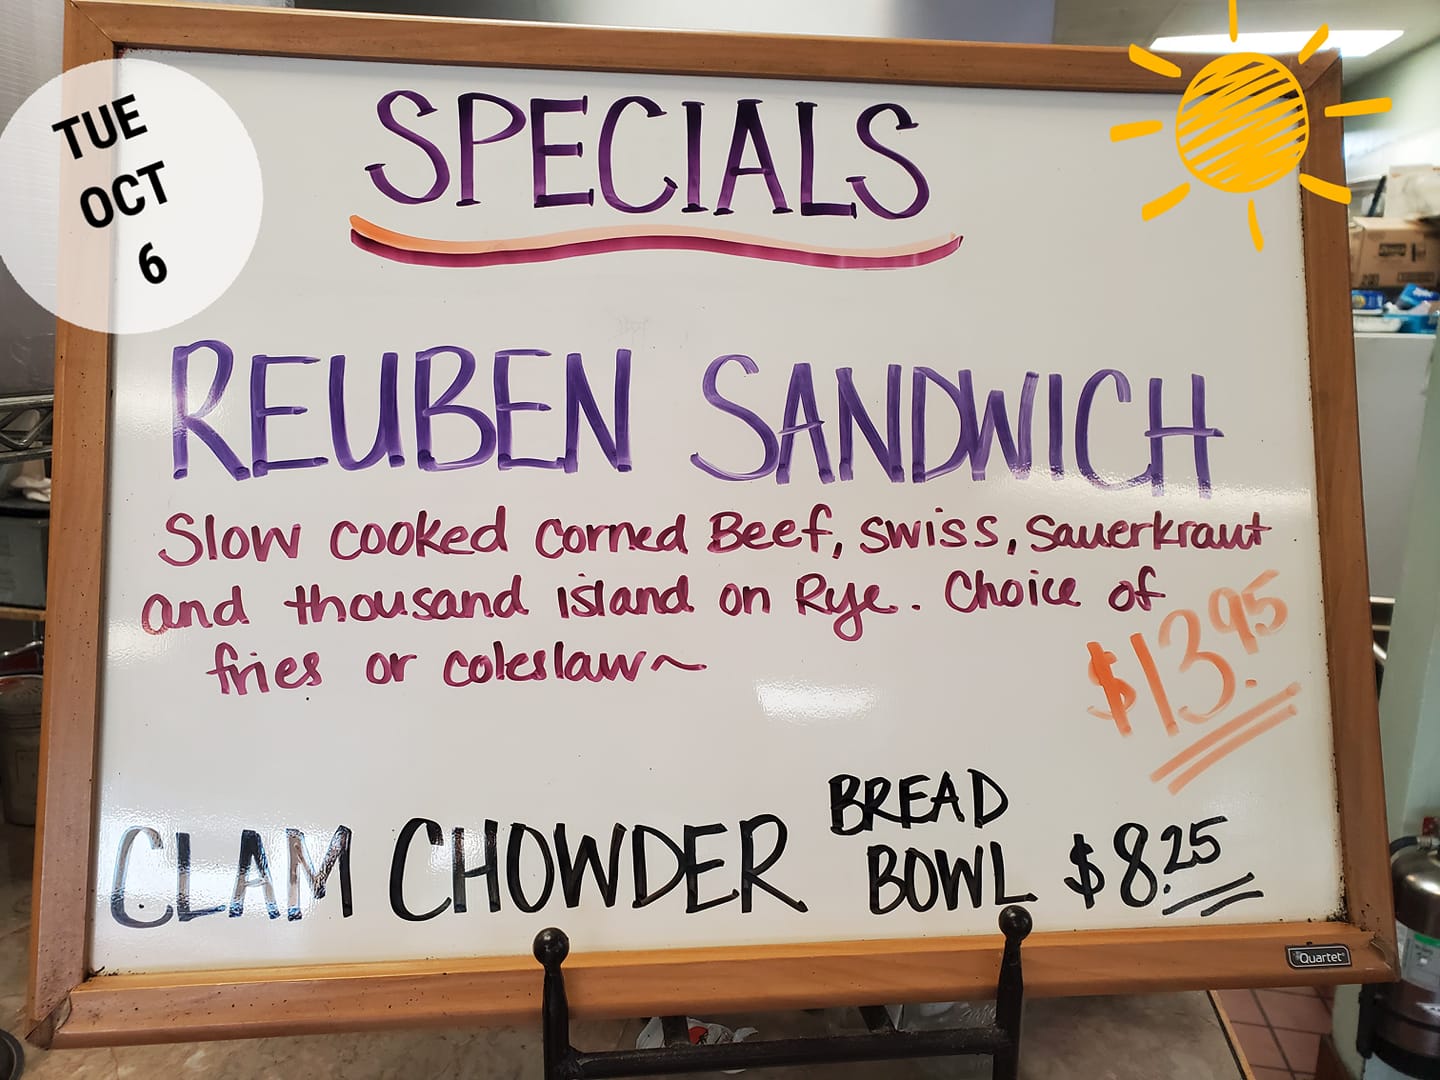 TUE
OCT
6
SPECIALS
REUBEN SANDWICH
Slow cooked corned Beef, swiss, Sauerkraut
and thousand island on Rye. Choice of
fries or coleslaw~
$13.95
CLAM CHOWDER BREAD
BOWL $8.25
Quartet